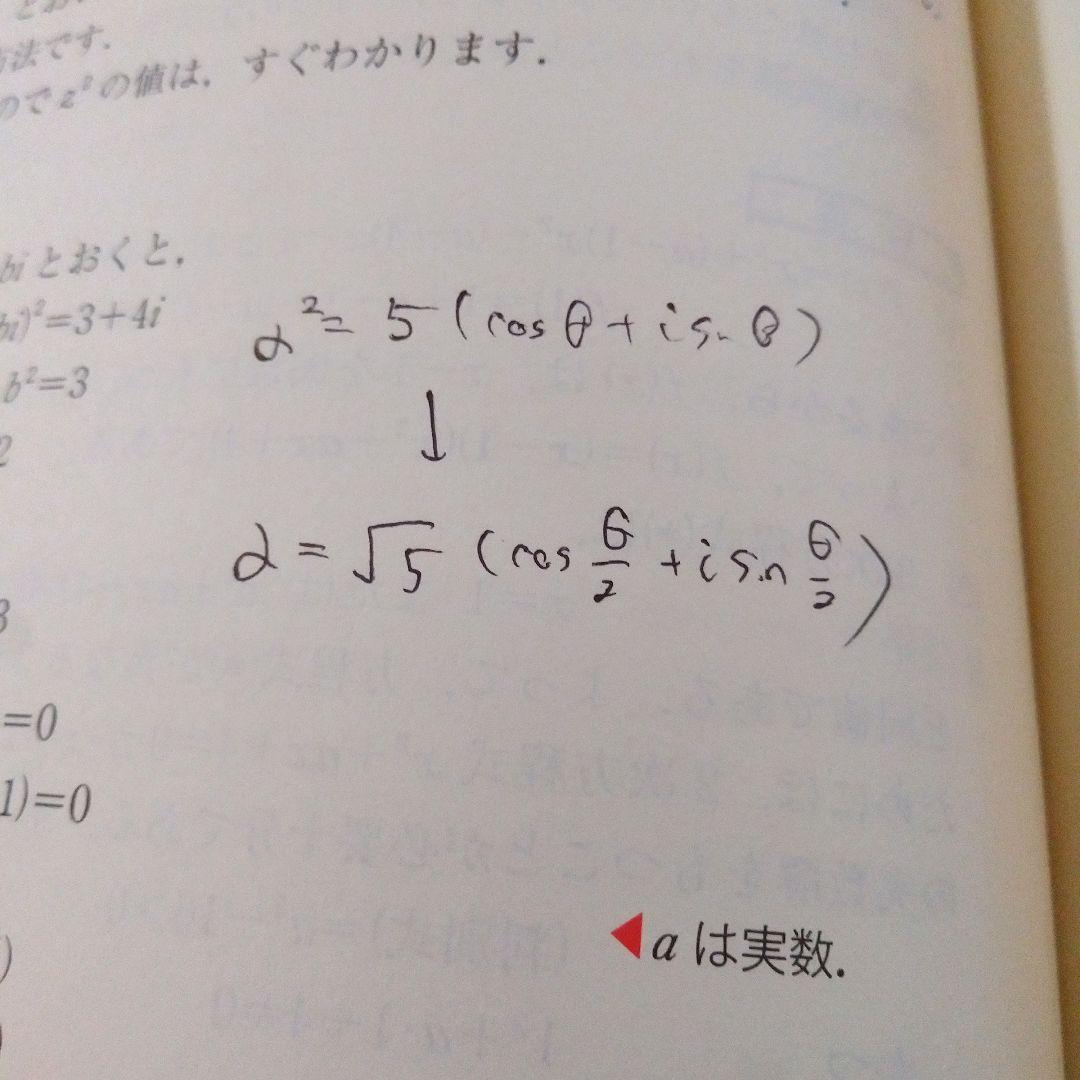 方法です.
のでz²の値は, すぐわかります.
biとおくと,
bi)²=3+4i
b²=3
2
α²= 5 (cosθ+i sin θ)
↓
α = √5 (cos θ/2 + i sin θ/2)
3
=0
1)=0
)
◀aは実数.